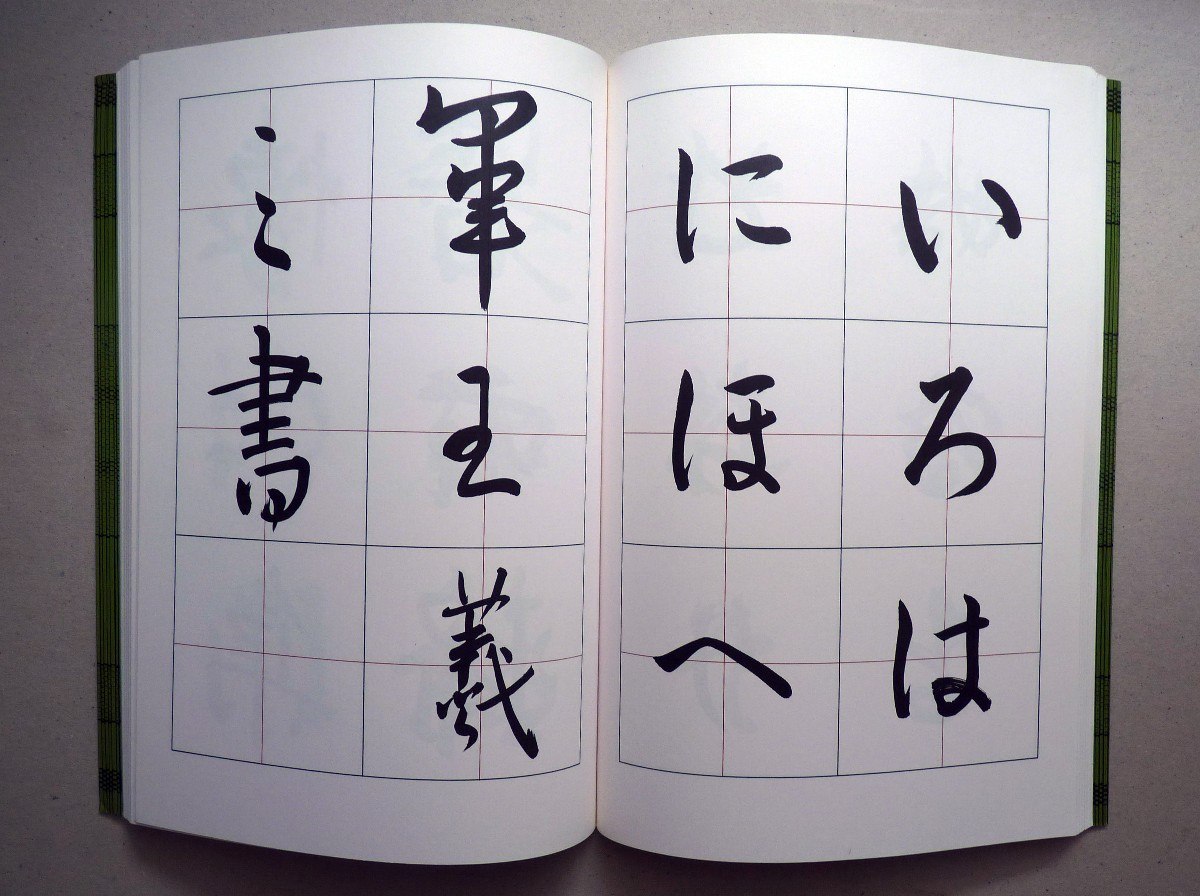 いろは
にほへ
軍王羲
之書